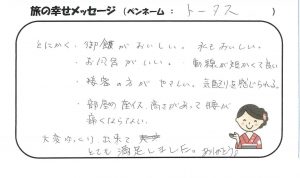 旅の幸せメッセージ (ペンネーム : トータス )
とにかく、御飯がおいしい。水もおいしい。
・お風呂がいい。動線が短かくて良い
・接客の方がやさしい。気配りを感じられる。
・部屋の座イス、高さがあって腰が
痛くならない。
大変ゆっくり出来て
とても満足しました。ありがとう